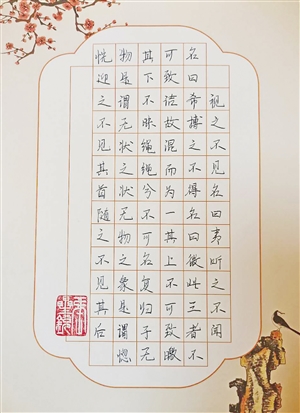 视之不见名曰夷听之不闻
名曰希搏之不得名曰微此三者不
可致诘故混而为一其上不可致皦
其下不昧绳绳兮不可名复归于无
物是谓无状之状无物之象是谓惚
恍迎之不见其首随之不见其后